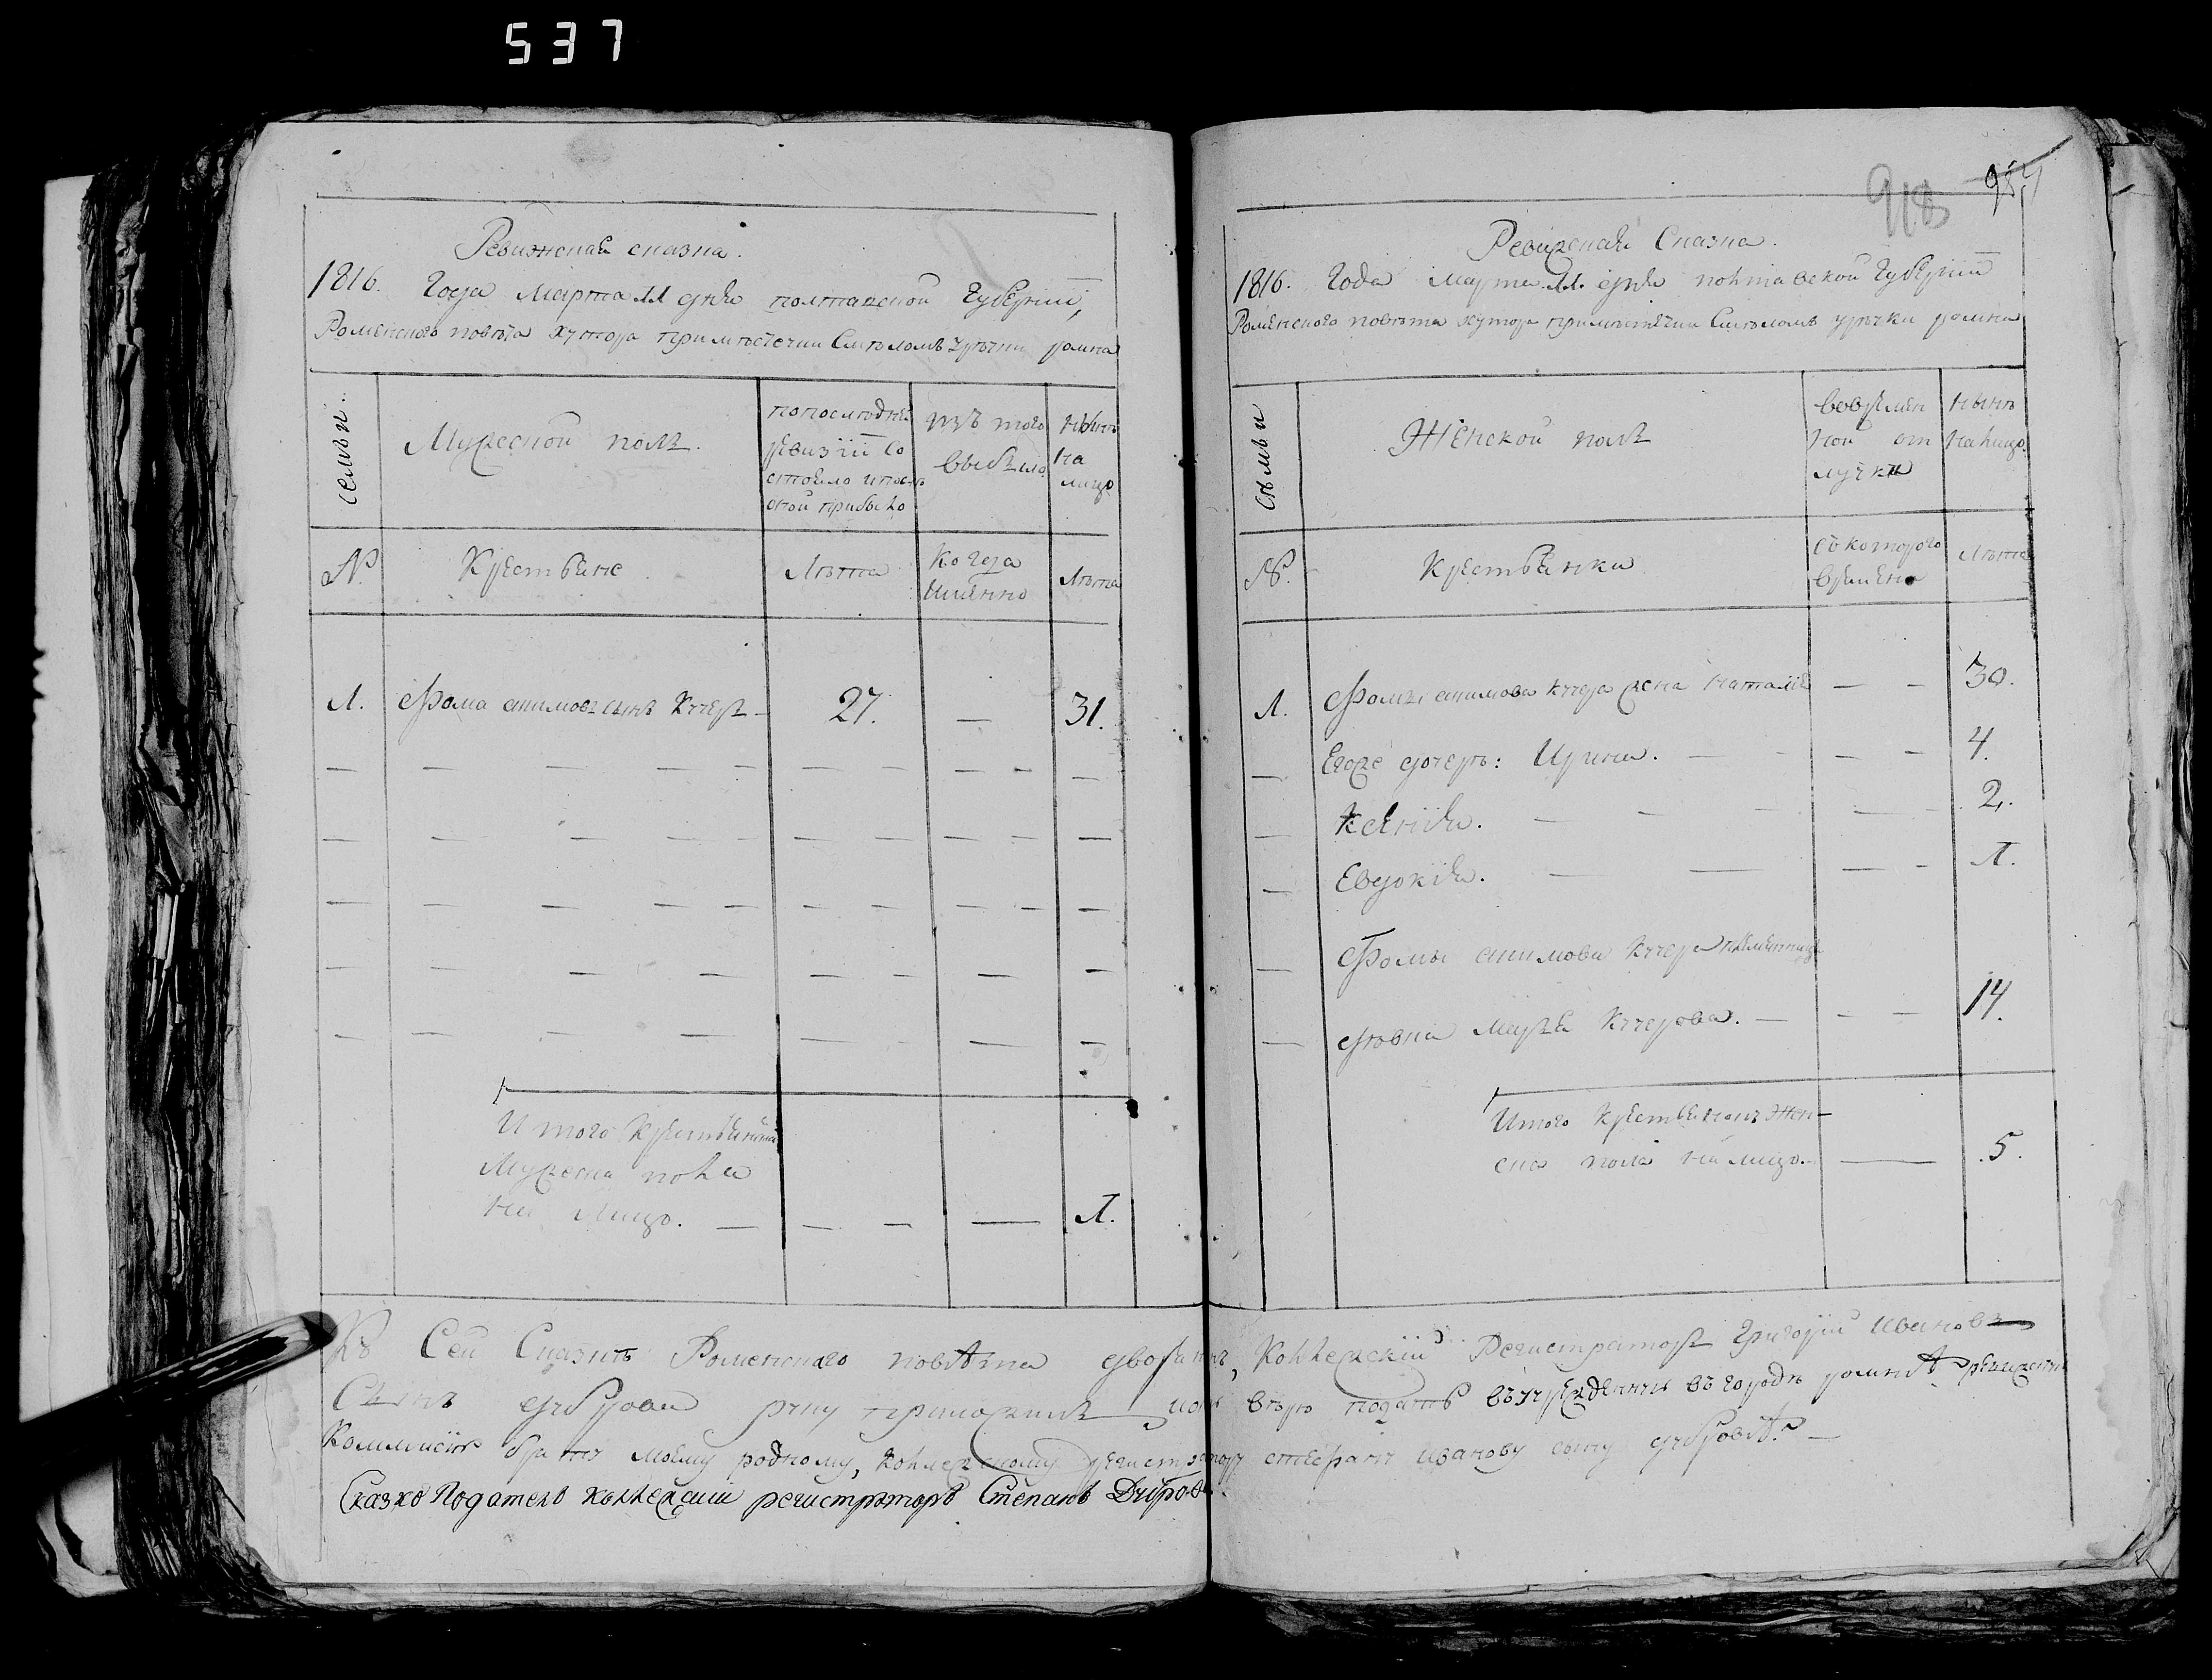 537
Ревижская сказка.
1816. Года Марта 11 дня полтавской Губернии,
Роменского повета хутора при местечки Смелом ъ уречки ромна
семьи.
Мужеской полъ.
попоследней ревизіи состояло и после оной прибыло
изъ того выбыло
нынѣ на лицо
№.
Крестьяне
Лѣта
Когда имянно
Лѣта
1. Фома акимовъ сынъ Кучеръ 27. — 31.
Итого крестьянъ
Мужеска пола
на Лицо. — 1.
918 954
Ревижская Сказка.
1816. Года марта 11. дня полтавской Губерніи
Роменского повѣта хутора примѣстечки Смѣломъ уречки ромна
семьи
Женской полъ
вовремянной отлучки
нынѣ налицо.
№.
Крестьянки
съ которого времени
Лѣта
1. Фомы акимова кучера жена наталія — — 30.
Егоже дочери: Ирина. — — 4.
Ксенія. — — 2.
Евдокія. — — 1.
Фомы акимова Кучера племянница
дѣвка Марья Кучерова. — — — 14.
Итого крестьянокъ Жен-
ска пола налицо. — 5.
Къ Сей Сказкѣ Роменского повѣта дворянинъ, Коллежскій Регистраторъ Григорій Ивановъ
Сынъ дубровa руку приложилъ и оную вѣрю подать въ учрежденную въ городѣ ромнѣ ревижскую
Коммисію брату моему родному, коллежскому регистратору степану иванову сыну дубровѣ. —
Сказко Податель коллежскій регистраторъ Степанъ Дуброва.